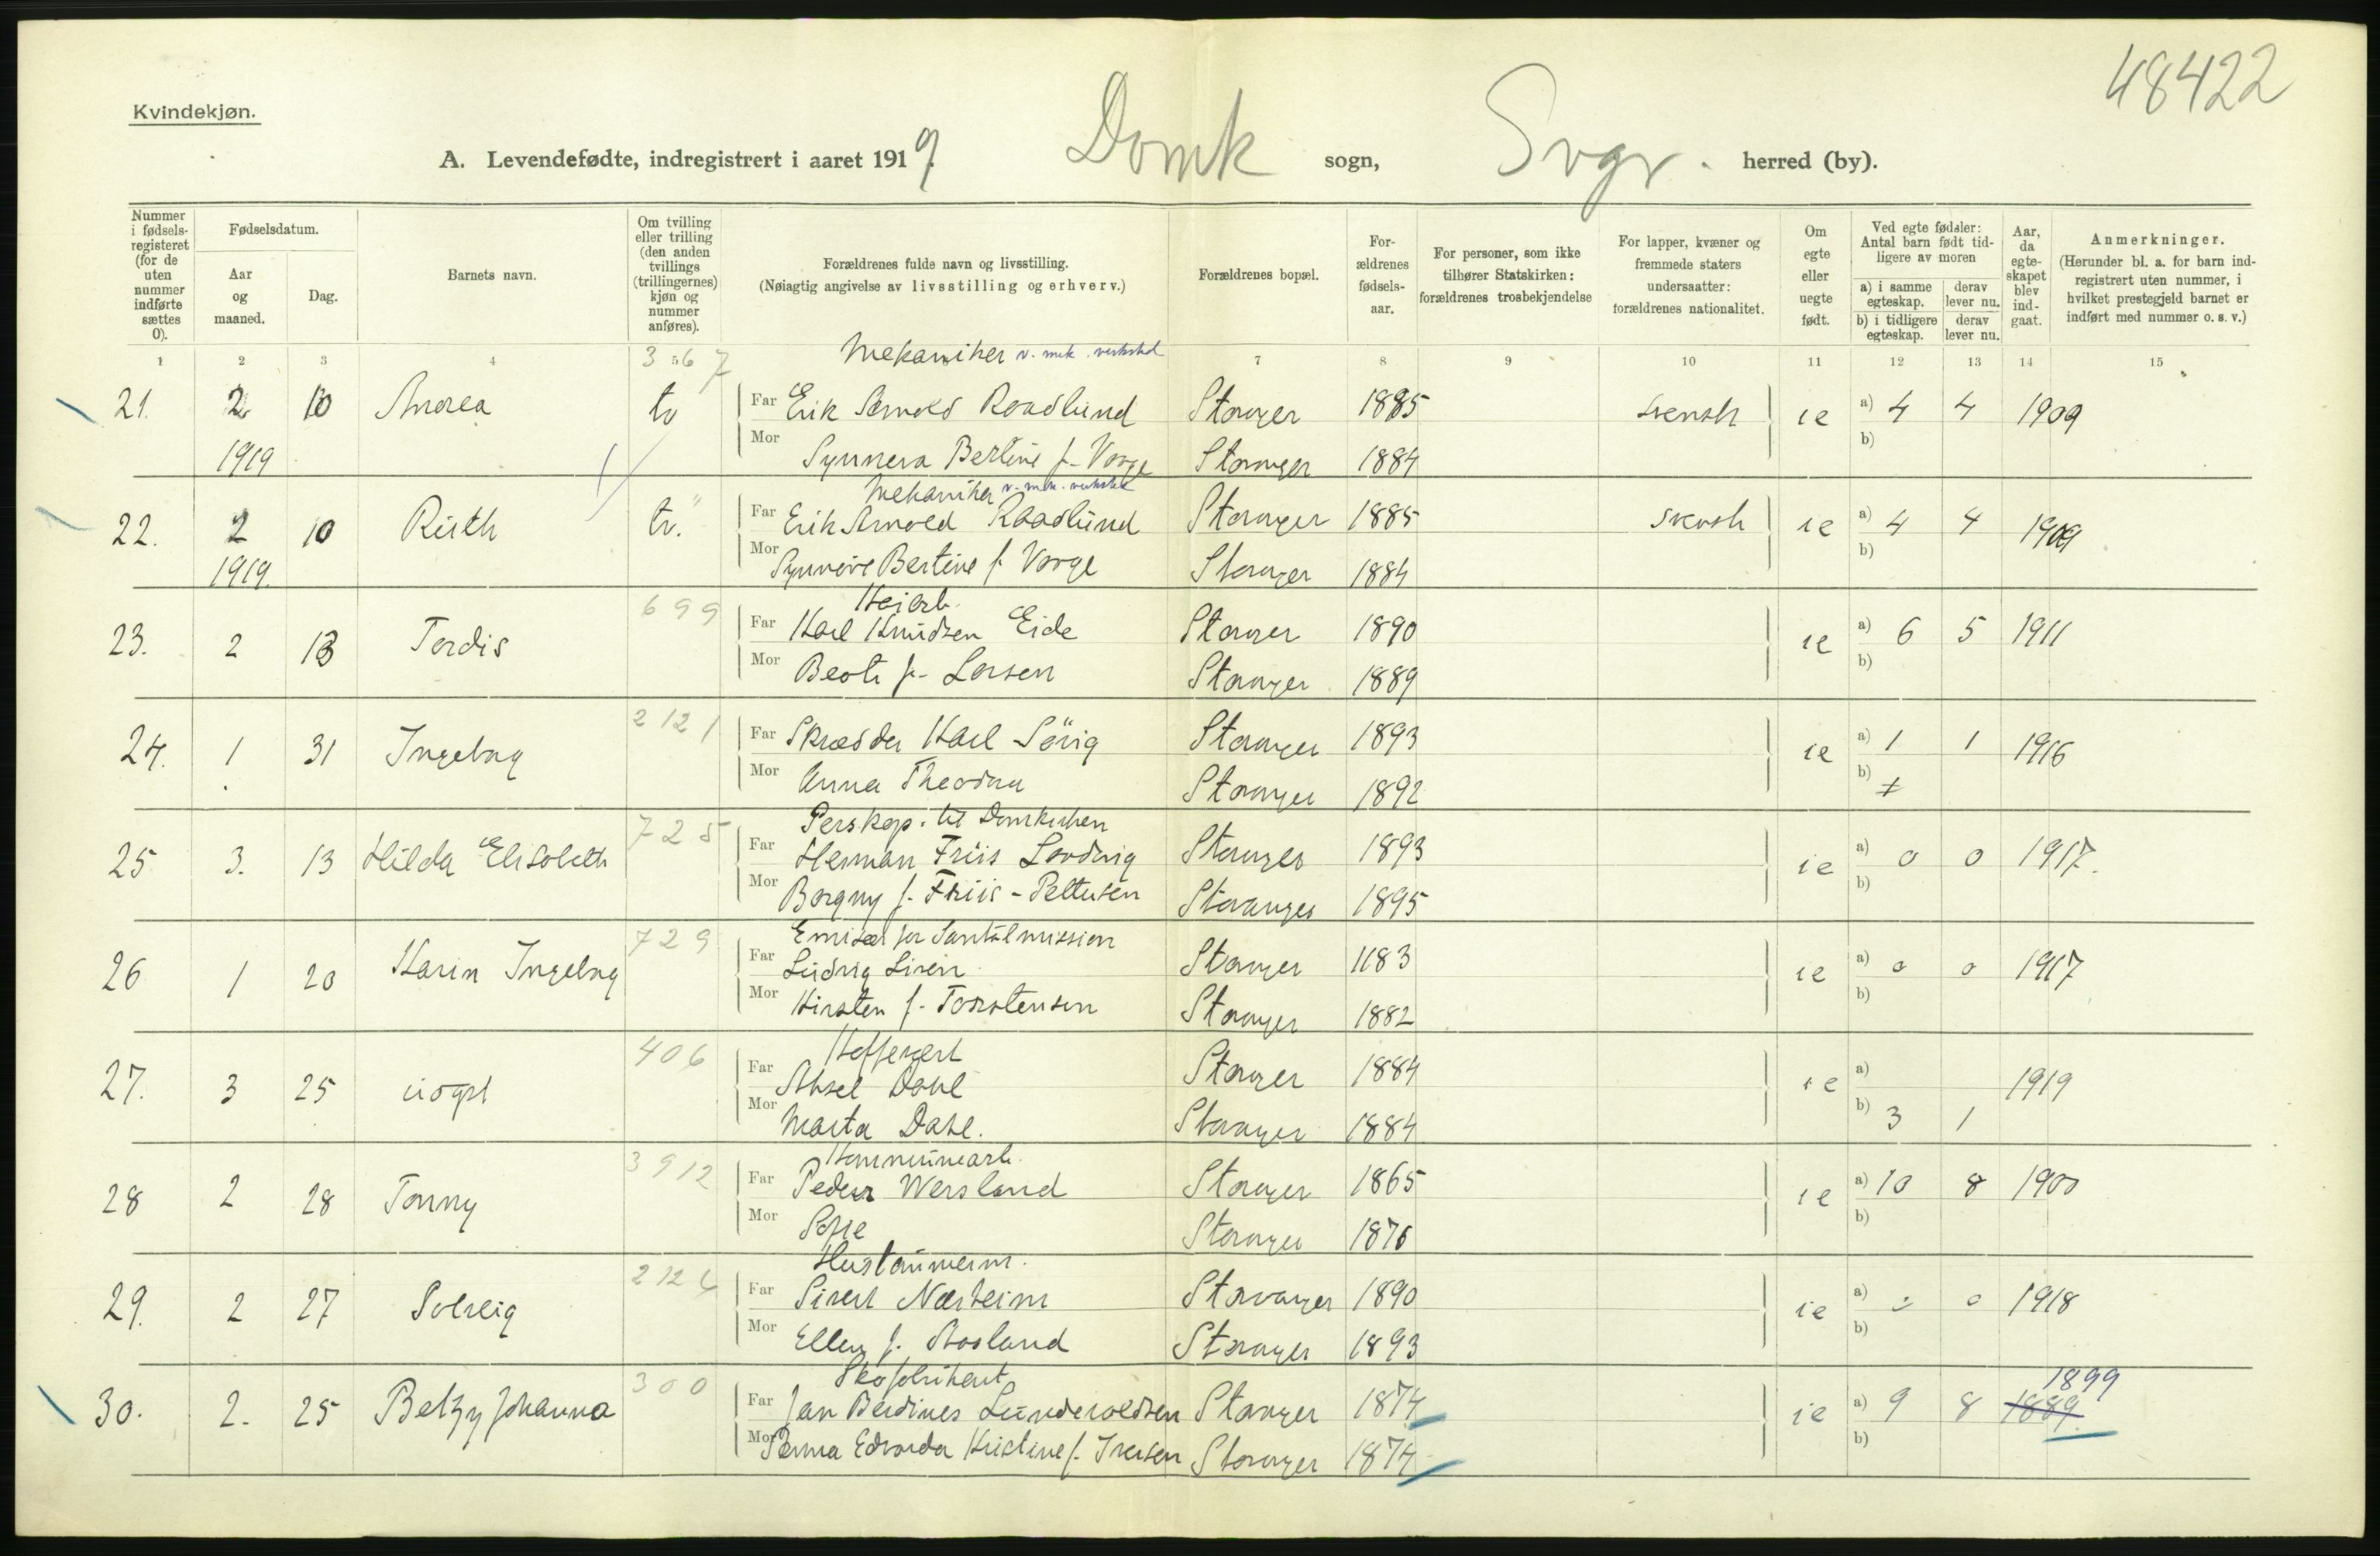 48422
Kvindekjøn.
A. Levendefødte, indregistrert i aaret 1919. Domk sogn, Svgr. herred (by).
Nummer i fødsels-registeret (for de uten nummer indførte sættes 0).
Fødselsdatum.
Aar og maaned.
Dag.
Barnets navn.
Om tvilling eller trilling (den anden tvillings (trillingernes) kjøn og nummer anføres).
Forældrenes fulde navn og livsstilling.
(Nøiagtig angivelse av livsstilling og erhverv.)
Forældrenes bopæl.
For-ældrenes fødsels-aar.
For personer, som ikke tilhører Statskirken: forældrenes trosbekjendelse
For lapper, kvæner og fremmede staters undersaatter: forældrenes nationalitet.
Om egte eller uegte født.
Ved egte fødsler: Antal barn født tid-ligere av moren
a) i samme egteskap. derav lever nu.
b) i tidligere egteskap. derav lever nu.
Aar, da egte-skapet blev ind-gaat.
Anmerkninger.
(Herunder bl. a. for barn ind-registrert uten nummer, i hvilket prestegjeld barnet er indført med nummer o. s. v.)
1 2 3 4 5 7 8 9 10 11 12 13 14 15
367 Mekaniker v. mek. verksted
21. 2 10 Andrea tv Far Erik Arnold Raadlund Stavanger 1885 svensk ie a) 4 4 1909
1919 Mor Synneva Bertine f. Varge Stavanger 1884 b)
Mekaniker v. mek. verksted
22. 2 10 Ruth tv. Far Erik Arnold Raadlund Stavanger 1885 svensk ie a) 4 4 1909
1919. Mor Synnøve Bertine f. Varge Stavanger 1884 b)
699
23. 2 13 Tordis Far Karl Knudsen Eide Stavanger 1890 ie a) 6 5 1911
Mor Beate f. Larsen Stavanger 1889 b)
2121
24. 1 31 Ingeborg Far Skrædder Karl Sörig Stavanger 1893 ie a) 1 1 1916
Mor Anna Theodora Stavanger 1892 b)
725 Perskap. til Domkirken
25 3. 13 Hilda Elisabeth Far Herman Friis Lovdvig Stavanger 1893 ie a) 0 0 1917.
Mor Borgny f. Friis - Pettersen Stavanger 1895 b)
729 Emisær for Santalmission
26 1 20 Karin Ingeborg Far Ludvig Stavanger 1183 ie a) 0 0 1917
Mor Kirsten f. Torstensen Stavanger 1882 b)
406
27. 3 25 udøpt Far Aksel Dahl Stavanger 1884 ie a) 1919
Mor Marta Dahl. Stavanger 1884 b) 3 1
3912 Kommunearb.
28 2 28 Tonny Far Peder Wersland Stavanger 1865 ie a) 10 8 1900
Mor Sofie Stavanger 1876 b)
Hustømmerm.
29. 2 27 Solveig Far Sivert Nærheim Stavanger 1890 ie a) 0 1918
Mor Ellen f. Aasland Stavanger 1893 b)
300 Skofabrikant 1899
30. 2. 25 Betzy Johanna Far Jan Berdines Lunderoldsen Stavanger 1874 ie a) 9 8 1889.
Mor Edvarda Kristine f. Iversen Stavanger 1874 b)